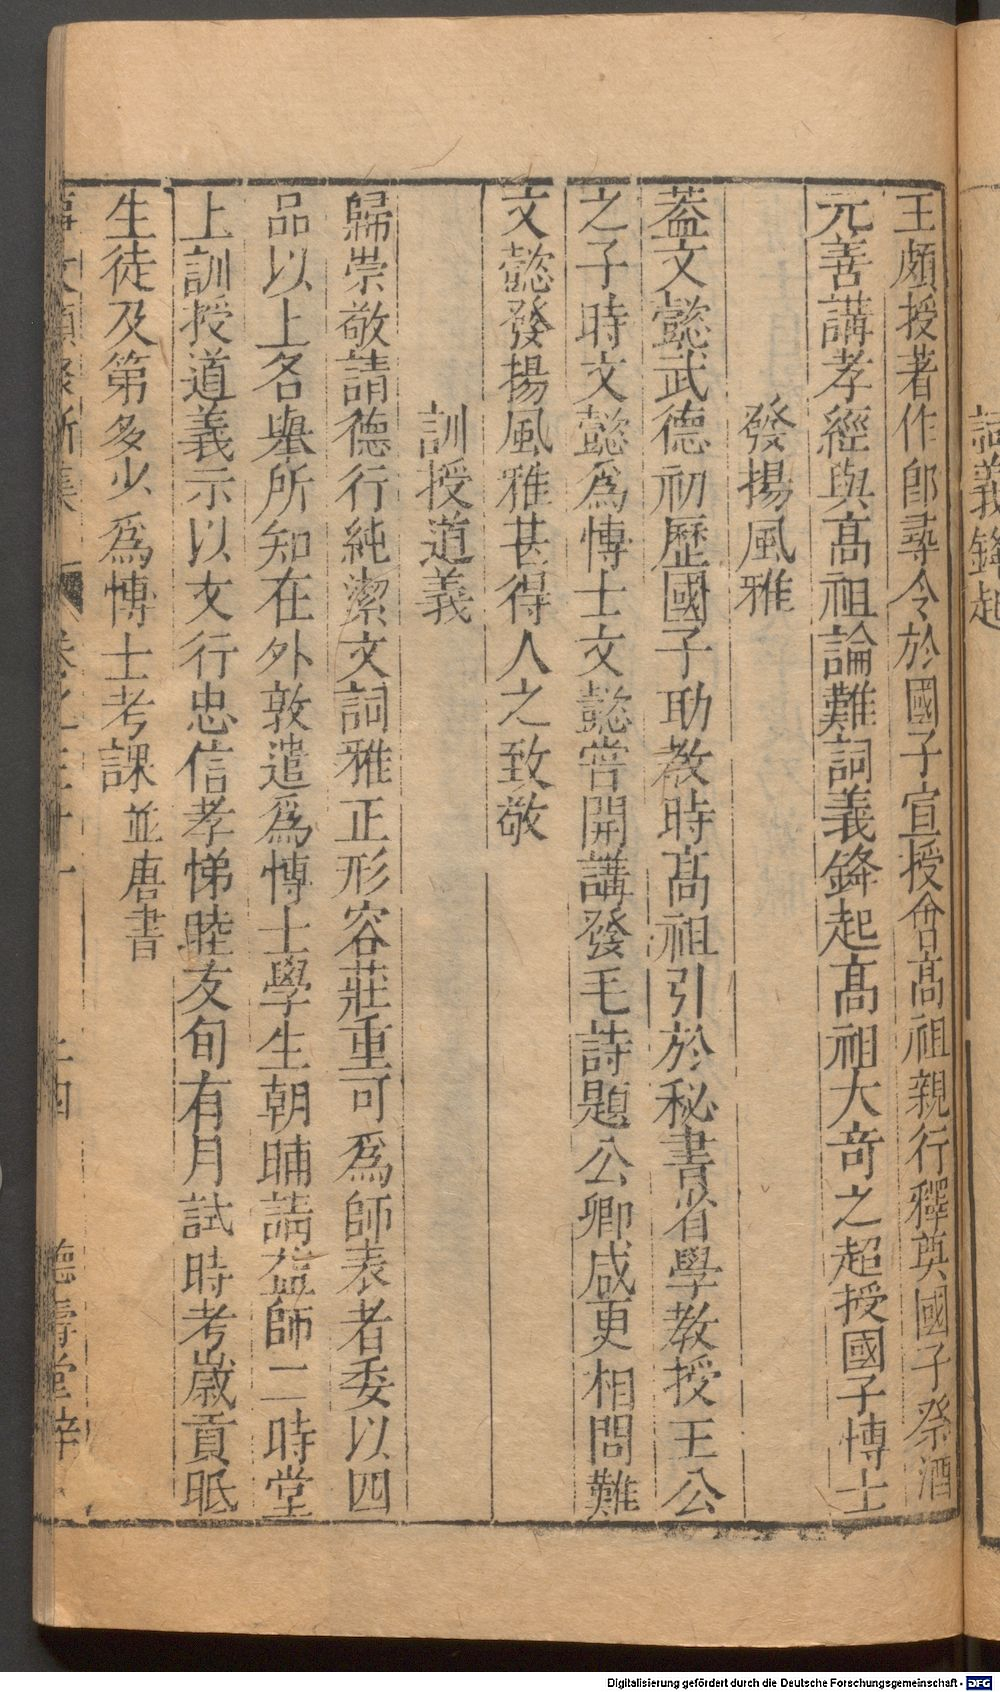 詞義鋒起
王頗授著作郎尋令於國子宣授會高祖親行釋奠國子祭酒
元善講孝經與高祖論難詞義鋒起高祖大奇之超授國子博士
發揚風雅
葢文懿武德初歷國子助教時高祖引於秘書省學教授王公
之子時文懿爲博士文懿嘗開講發毛詩題公卿咸更相問難
文懿發揚風雅甚得人之致敬
訓授道義
歸崇敬請德行純潔文詞雅正形容莊重可爲師表者委以四
品以上各舉所知在外敦遣爲博士學生朝晡請益師二時堂
上訓授道義示以文行忠信孝悌睦友旬有月試時考歲貢眂
生徒及第多少爲博士考課並唐書
事文類聚新集 卷之三十一 二四 德壽堂梓
Digitalisierung gefördert durch die Deutsche Forschungsgemeinschaft - DFG